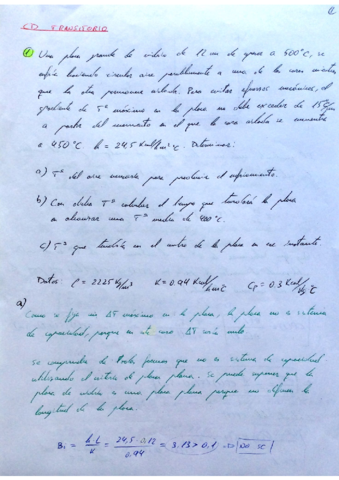 CD TRANSITORIO
① Una placa grande de vidrio de 12 cm de grosor a 500°C, se
enfría haciendo circular aire paralelamente a una de las caras mientras
que la otra permanece aislada. Para evitar esfuerzos mecánicos, el
gradiente de Tª máximo en la placa no debe exceder de 15°C/
a partir del momento en el que la cara aislada se encuentra
a 450°C h = 24,5 Kcal/hm²°C. Determinar:
a) Tª del aire necesaria para producir el enfriamiento.
b) Con dicha Tª calcular el tiempo que tardará la placa
en alcanzar una Tª media de 400°C.
c) Tª que tendrá en el centro de la placa en ese instante.
Datos ρ = 2225 Kg/m³ K = 0.94 Kcal/hm°C Cp = 0.3 Kcal/Kg°C
a)
Como se fija un ΔT máximo en la placa, la placa no es sistema
de capacidad, porque en ese caso ΔT sería nulo.
Se comprueba de todas formas que no es sistema de capacidad
utilizando el criterio de placa plana. Se puede suponer que la
placa de vidrio es una placa plana porque no la
longitud de la placa.
Bi = h·L/K = 24,5·0.12/0.94 = 3.13 > 0,1 → NO SC